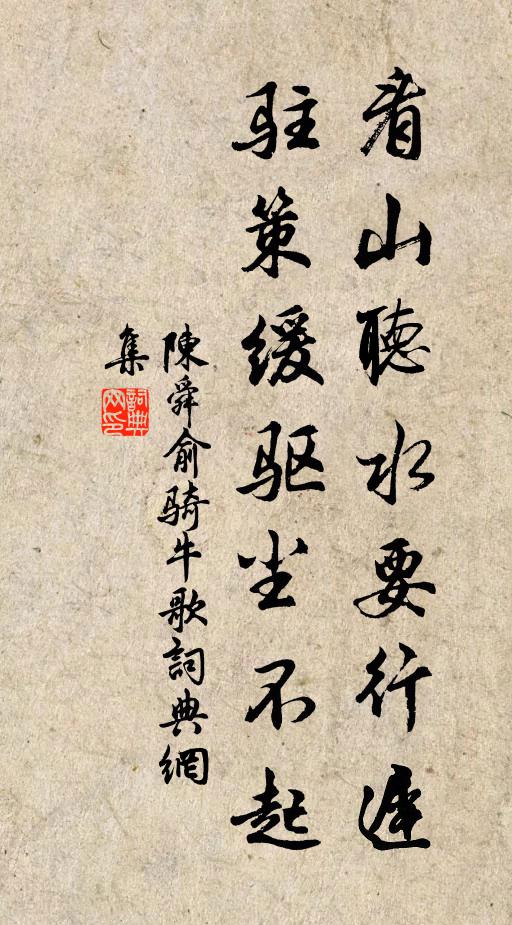 看山聽水要行遲
駐策緩驱尘不起
陳舜俞骑牛歌詞典網
集
詞典網印